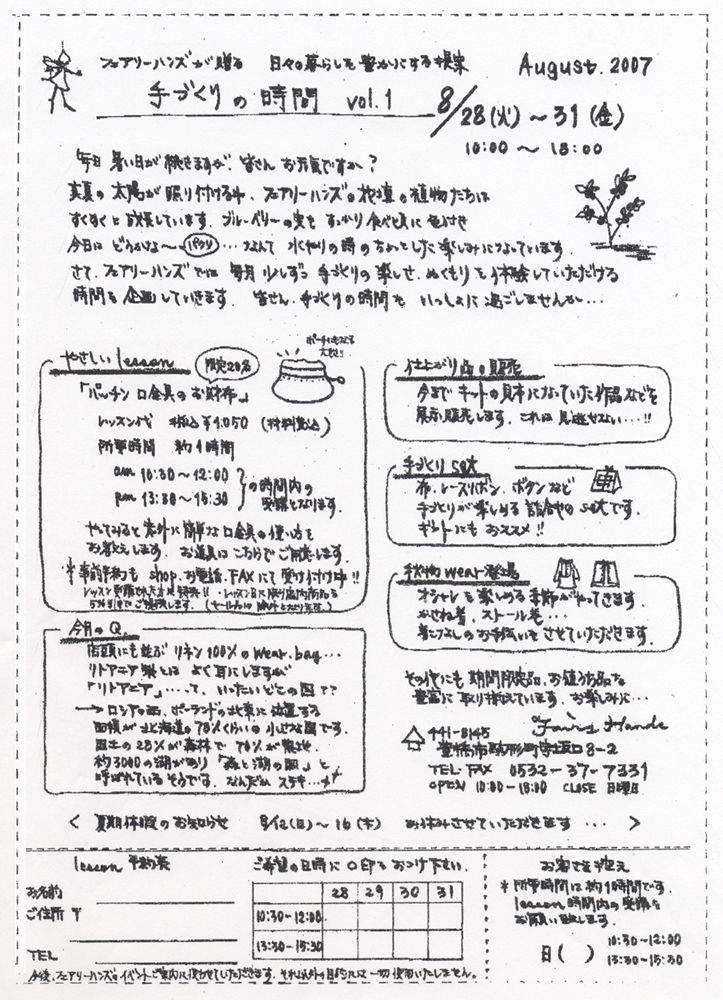 フェアリーハンズが贈る 日々の暮らしを豊かにする提案
August. 2007
手づくりの時間 vol.1
8/28(火)～31(金)
10:00～18:00
毎日 暑い日が続きますが、皆さん お元気ですか?
真夏の太陽が照り付ける中、フェアリーハンズの花壇の植物たちは
すくすくと成長しています。ブルーベリーの実を すっかり食べ頃に色付き
今日は どうかな～ パクリ …なんて 水やりの時のちょっとした楽しみになっています。
さて、フェアリーハンズでは 毎月 少しずつ 手づくりの楽しさ、ぬくもりを体験していただける
時間を 企画していきます。 皆さん、手づくりの時間を いっしょに過ごしませんか…
やさしい lesson
限定20名
「パッチン口金具のお財布」
レッスン代 税込¥1,050 (材料費込)
所要時間 約1時間
am 10:30～12:00
pm 13:30～15:30
の時間内の
受講となります。
やってみると意外に簡単な口金具の使い方を
お教えします。 お道具はこちらでご用意します。
*事前予約も shop、お電話、FAXにて 受け付け中!!
今月の Q.
店頭にも並ぶ リネン100%の wear、bag…
リトアニア製とは よく耳にしますが
「リトアニア」…って、いったいどこの国??
→ ロシアの西、ポーランドの北東に位置する
面積が北海道の78%くらいの 小さな国です。
国土の28%が森林で 70%が農地。
約3000の湖があり 「森と湖の国」と
呼ばれているそうです。なんだか ステキ…
仕上がり品の販売
今まで キットの見本になっていた作品などを
展示販売します。これは見逃せない…!!
手づくり set
布、レースリボン、ボタンなど
手づくりが楽しめる 詰合せの setです。
ギフトにも おススメ!!
秋物 wear 登場
オシャレを楽しめる季節がやってきます。
かさね着、ストール巻…
着こなしのお手伝いを させていただきます。
その他にも 期間限定品、お値うち品を
豊富に取り揃えています。お楽しみに…
Fairy Hands
441-8145
豊橋市駒形町 8-2
TEL・FAX 0532-37-7331
OPEN 10:00-18:00 CLOSE 日曜日
< 夏期休暇のお知らせ 8/12(日)～16(木) お休みさせていただきます … >
lesson 予約表
ご希望の日時に ○印を おつけ下さい。
28 29 30 31
10:30-12:00
13:30-15:30
お名前
ご住所 〒
TEL
今後、フェアリーハンズのイベントご案内に使わせていただきます。それ以外の目的には 一切 使用いたしません。
お客さま控え
*所要時間は約1時間です。
lesson時間内の受講を
お願い致します。
日( )
10:30～12:00
13:30～15:30